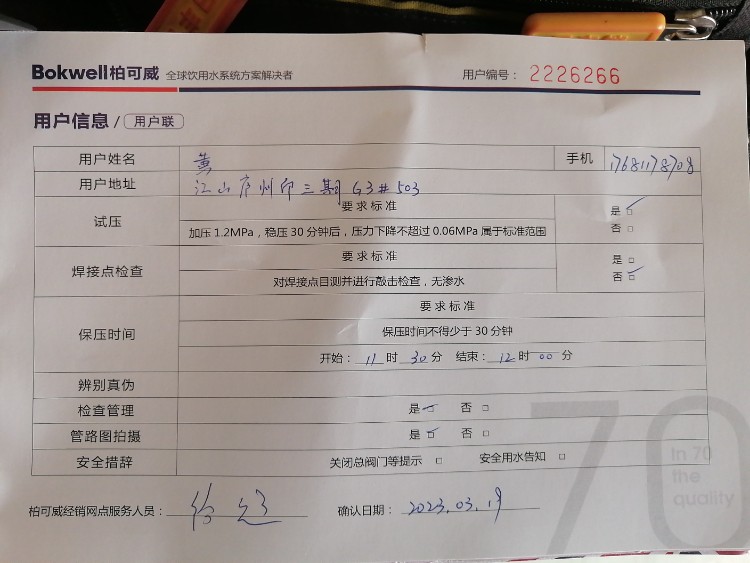 Bokwell柏可威 全球饮用水系统方案解决者 用户编号： 2226266
用户信息 / 用户联
用户姓名 黄 手机 17681178708
用户地址 江山 州印三期 G3#503
试压 要求标准 是
加压 1.2MPa，稳压 30 分钟后，压力下降不超过 0.06MPa 属于标准范围 否
焊接点检查 要求标准 是
对焊接点目测并进行敲击检查，无渗水 否
保压时间 要求标准
保压时间不得少于 30 分钟
开始： 11 时 30 分 结束： 12 时 00 分
辨别真伪
检查管理 是 否
管路图拍摄 是 否
安全措辞 关闭总阀门等提示 安全用水告知
柏可威经销网点服务人员：
确认日期： 2023.03.19
70
In 70
the
quality